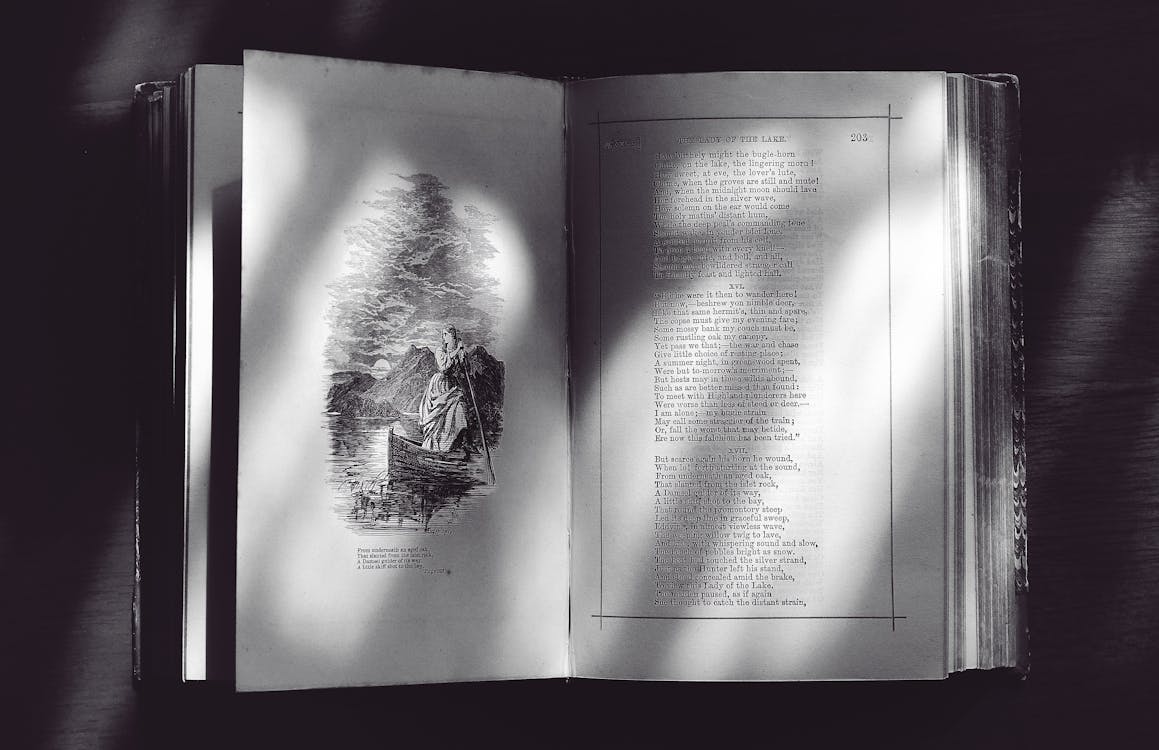 From underneath an aged oak,
That slanted from the islet rock,
A Damsel guider of its way,
A little skiff shot to the bay,
THE LADY OF THE LAKE.
203
blithely might the bugle-horn
on the lake, the lingering morn!
sweet, at eve, the lover's lute,
when the groves are still and mute!
when the midnight moon should lave
forehead in the silver wave,
How solemn on the ear would come
The holy matins' distant hum,
the deep peal's commanding tone
yonder islet lone,
from his cell,
with every knell—
and bell, and all,
bewildered stranger call
To friendly feast and lighted hall.
XVI.
were it then to wander here!
But now,—beshrew yon nimble deer,
Like that same hermit's, thin and spare,
The copse must give my evening fare;
Some mossy bank my couch must be,
Some rustling oak my canopy.
Yet pass we that;—the war and chase
Give little choice of resting-place;
A summer night, in greenwood spent,
Were but to-morrow's merriment;—
But hosts may in these wilds abound,
Such as are better missed than found:
To meet with Highland plunderers here
Were worse than loss of steed or deer,—
I am alone;—my bugle strain
May call some straggler of the train;
Or, fall the worst that may betide,
Ere now this falchion has been tried."
XVII.
But scarce again his horn he wound,
When lo! forth starting at the sound,
From underneath an aged oak,
That slanted from the islet rock,
A Damsel guider of its way,
A little skiff shot to the bay,
That round the promontory steep
Led its deep line in graceful sweep,
Eddying, in almost viewless wave,
The weeping willow twig to lave,
And kiss, with whispering sound and slow,
The beach of pebbles bright as snow.
The boat had touched the silver strand,
Just as the Hunter left his stand,
And stood concealed amid the brake,
To view this Lady of the Lake.
The maiden paused, as if again
She thought to catch the distant strain,